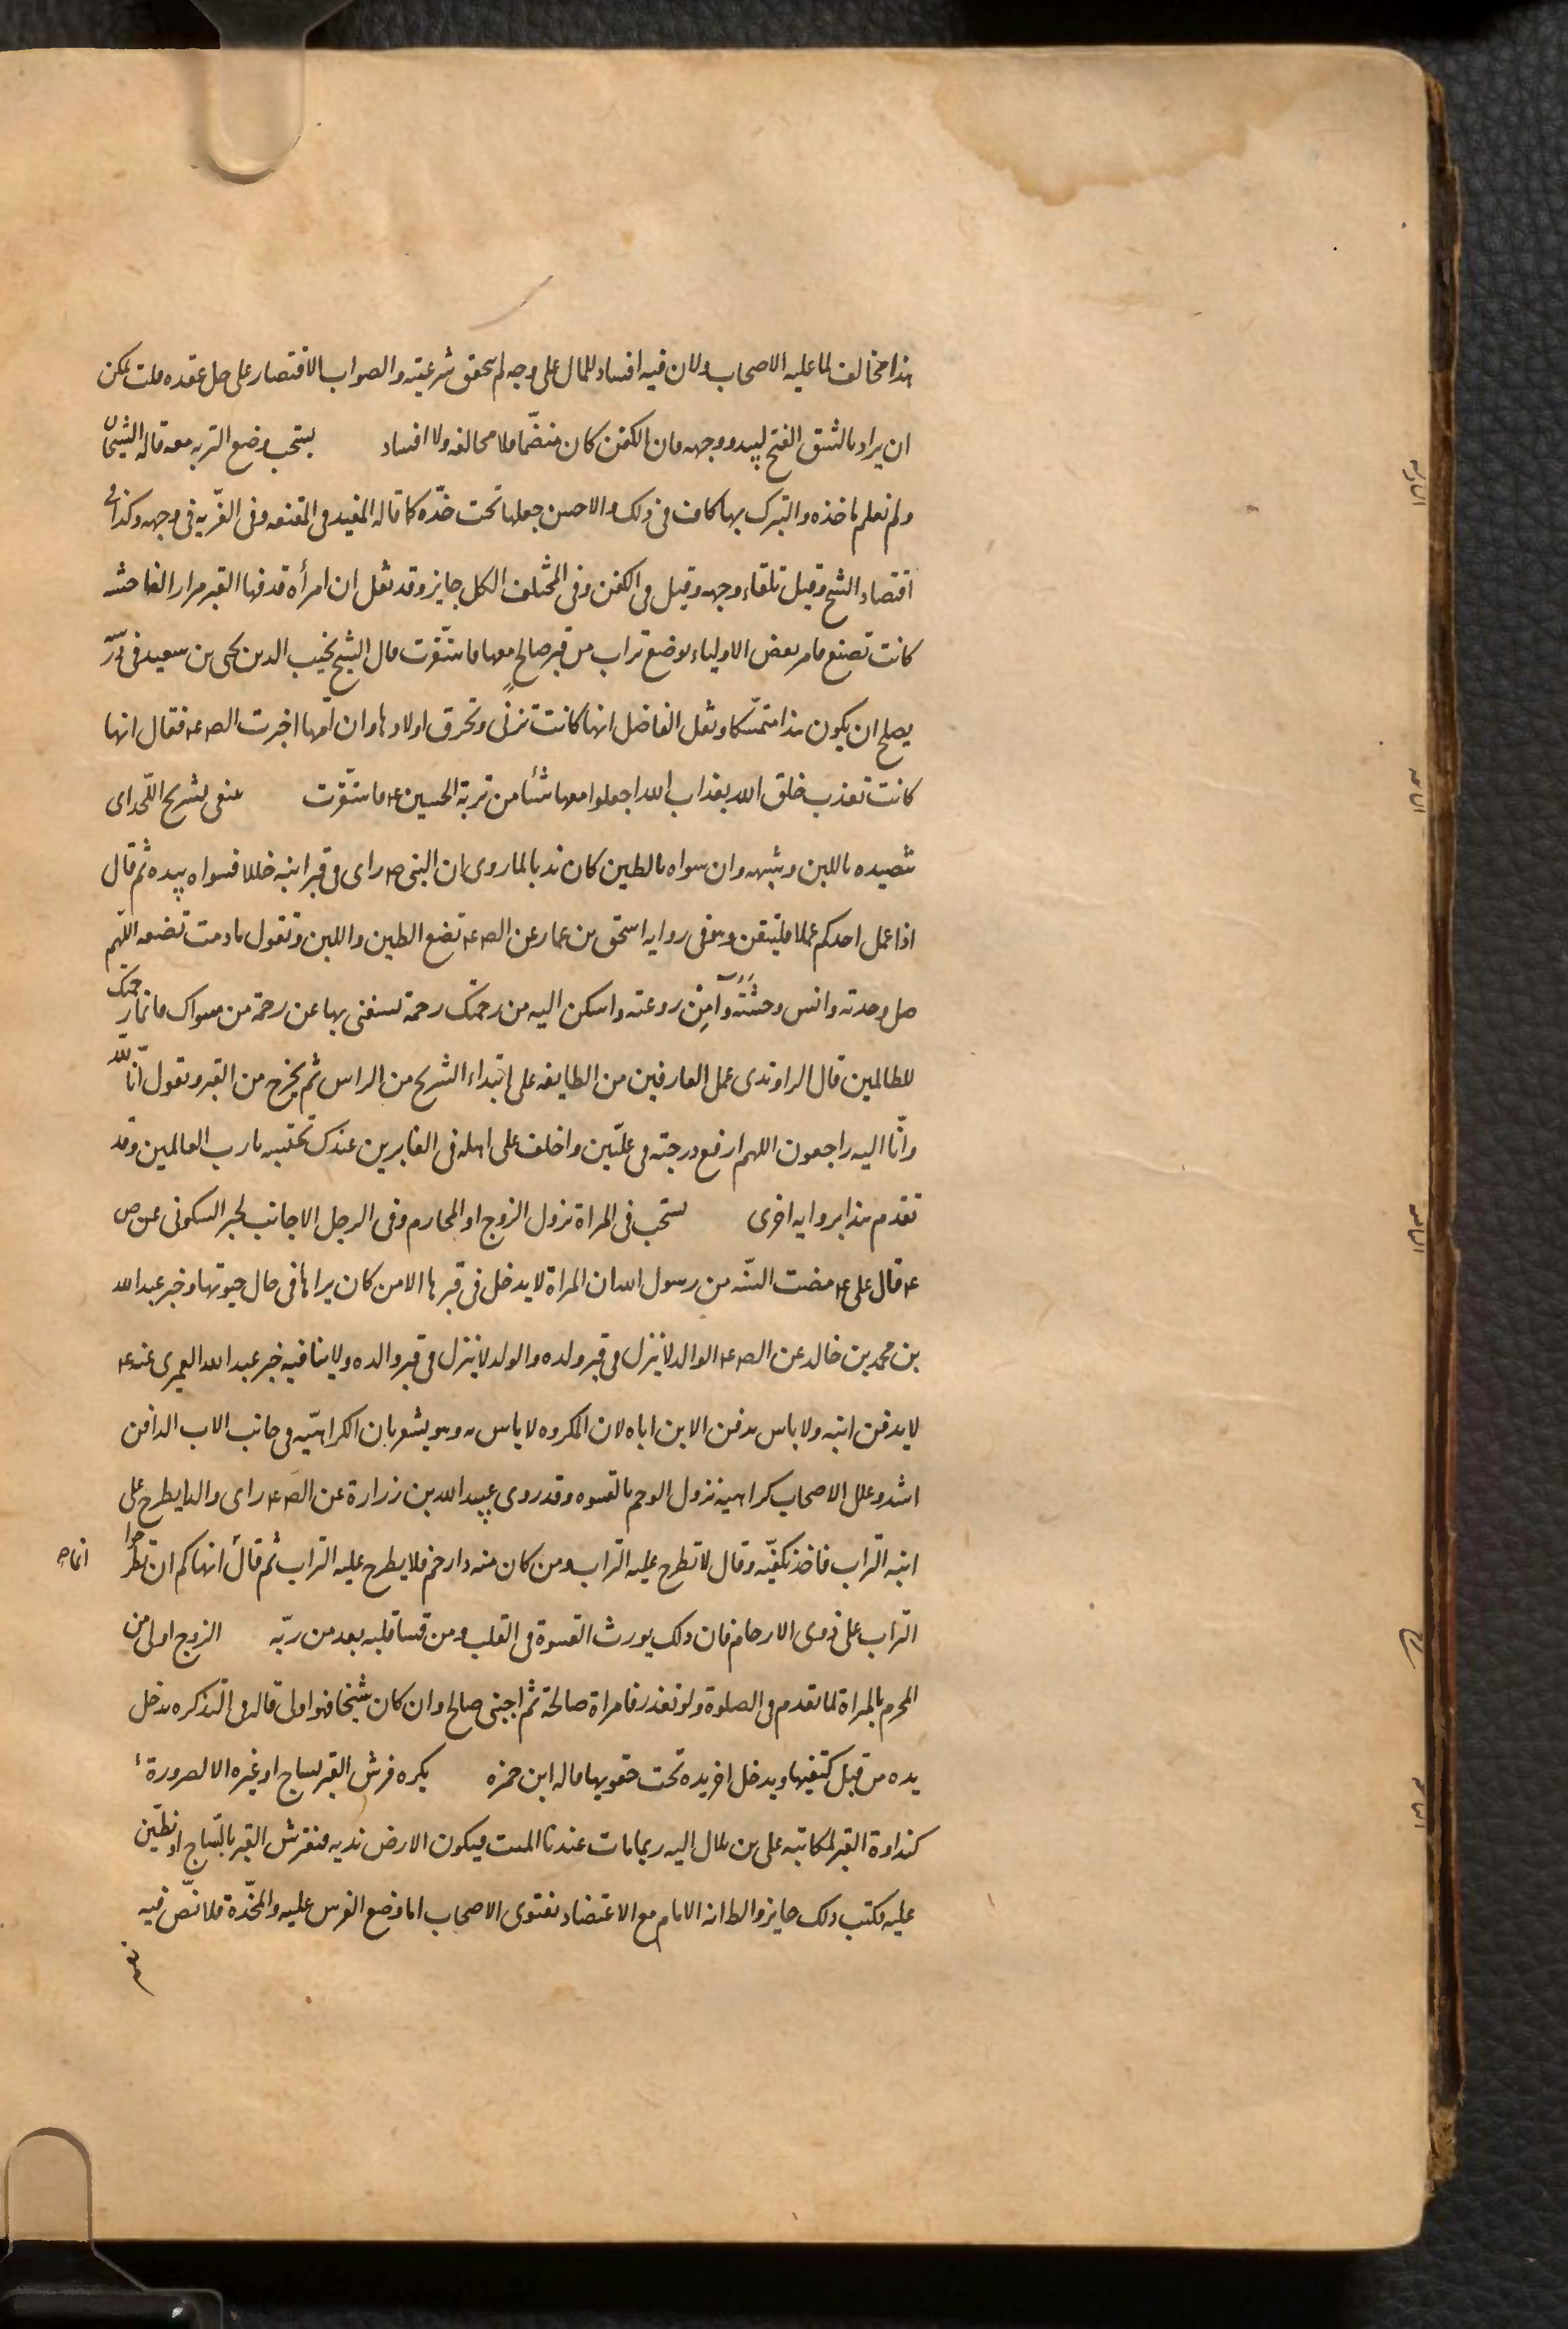 هذا مخالف لما عليه الاصحاب ولان فيه افساد للمال على وجه لم يتحقق شرعيته والصواب الاقتصار على حل عقده قلت يمكن
ان يراد بالشق الفتح ليبدو وجهه فان الكفن كان منضمّا فلا مخالفه ولا افساد يستحب وضع التربه معه قاله الشيخان
ولم نعلم ماخذه والتبرك بها كاف فى ذلك والاحسن جعلها تحت خدّه كما قاله المفيد فى المقنعه وفى العزّيه فى وجهه وكذا فى
اقتصاد الشيخ وقيل تلقاء وجهه وقيل فى الكفن وفى المختلف الكل جايز وقد نقل ان امرأه قذفها القبر مرارا لفاحشه
كانت تصنع فامر بعض الاولياء بوضع تراب من قبر صالح معها فاستقرّت قال الشيخ نجيب الدين يحيى بن سعيد فى درسه
يصلح ان يكون هذا متمسّكا ونقل الفاضل انها كانت تزنى وتحرق اولادها وان امّها اخبرت الص ع فقال انها
كانت تعذب خلق الله بعذاب الله اجعلوا معها شئا من تربة الحسين ع فاستقرّت ينبغى تشريج اللّحد اى
تنضيده باللبن وشبهه وان سواه بالطين كان ندبا لما روى ان النبى ص راى فى قبر ابنه خللا فسواه بيده ثم قال
اذا عمل احدكم عملا فليتقن وهو فى روايه اسحق بن عمار عن الص ع تضع الطين واللبن وتقول مادمت تضعه اللهم
صل وحدته وانس وحشته وآمن روعته واسكن اليه من رحمتك رحمة تستغنى بها عن رحمة من سواك فانما رحمتك
للظالمين قال الراوندى عمل العارفين من الطايفه على ابتداء التشريج من الراس ثم يخرج من القبر ويقول انّا لله
وانّا اليه راجعون اللهم ارفع درجته فى علّيين واخلف على اهله فى الغابرين عندك نحتسبه يا رب العالمين وقد
تقدم هذا بروايه اخرى يستحب فى المراة نزول الزوج او المحارم وفى الرجل الاجانب لخبر السكونى عن ص
ع قال على ع مضت السّنّه من رسول الله ان المراة لا يدخل فى قبرها الا من كان يراها فى حال حيوتها وخبر عبد الله
بن محمد بن خالد عن الص ع الوالد لا ينزل فى قبر ولده والولد لا ينزل فى قبر والده ولا ينافيه خبر عبد الله العمرى عنه ع
لا يدفن ابنه ولا باس بدفن الابن اباه لان المكروه لا باس به وهو يشعر بان الكراهيّه فى جانب الاب الدافن
اشد وعلل الاصحاب كراهيه نزول الرحم بالقسوه وقد روى عبيد الله بن زرارة عن الص ع راى والدا يطرح على
ابنه التراب فاخذ بكفّيه وقال لا تطرح عليه التراب ومن كان منه ذا رحم فلا يطرح عليه التراب ثم قال انهاكم ان تطرحوا
التراب على ذوى الارحام فان ذلك يورث القسوة فى القلب ومن قسا قلبه بعد من ربّه الزوج اولى من
المحرم بالمراة لما تقدم فى الصلوة ولو تعذر فامراة صالحة ثم اجنبى صالح وان كان شيخا فهو اولى قاله فى التذكره يدخل
يده من قبل كتفيها ويدخل اخر يده تحت حقويها قاله ابن حمزه يكره فرش القبر بساج او غيره الا لضرورة
كنداوة القبر لمكاتبه على بن بلال اليه ربما مات عندنا الميت فيكون الارض نديه فنفرش القبر بالسّاج او نطبّق
عليه فكتب ذلك جايز والظ انه الامام مع الاعتضاد بفتوى الاصحاب اما وضع الفرش عليه والمخدّة فلا نصّ فيه
نعم